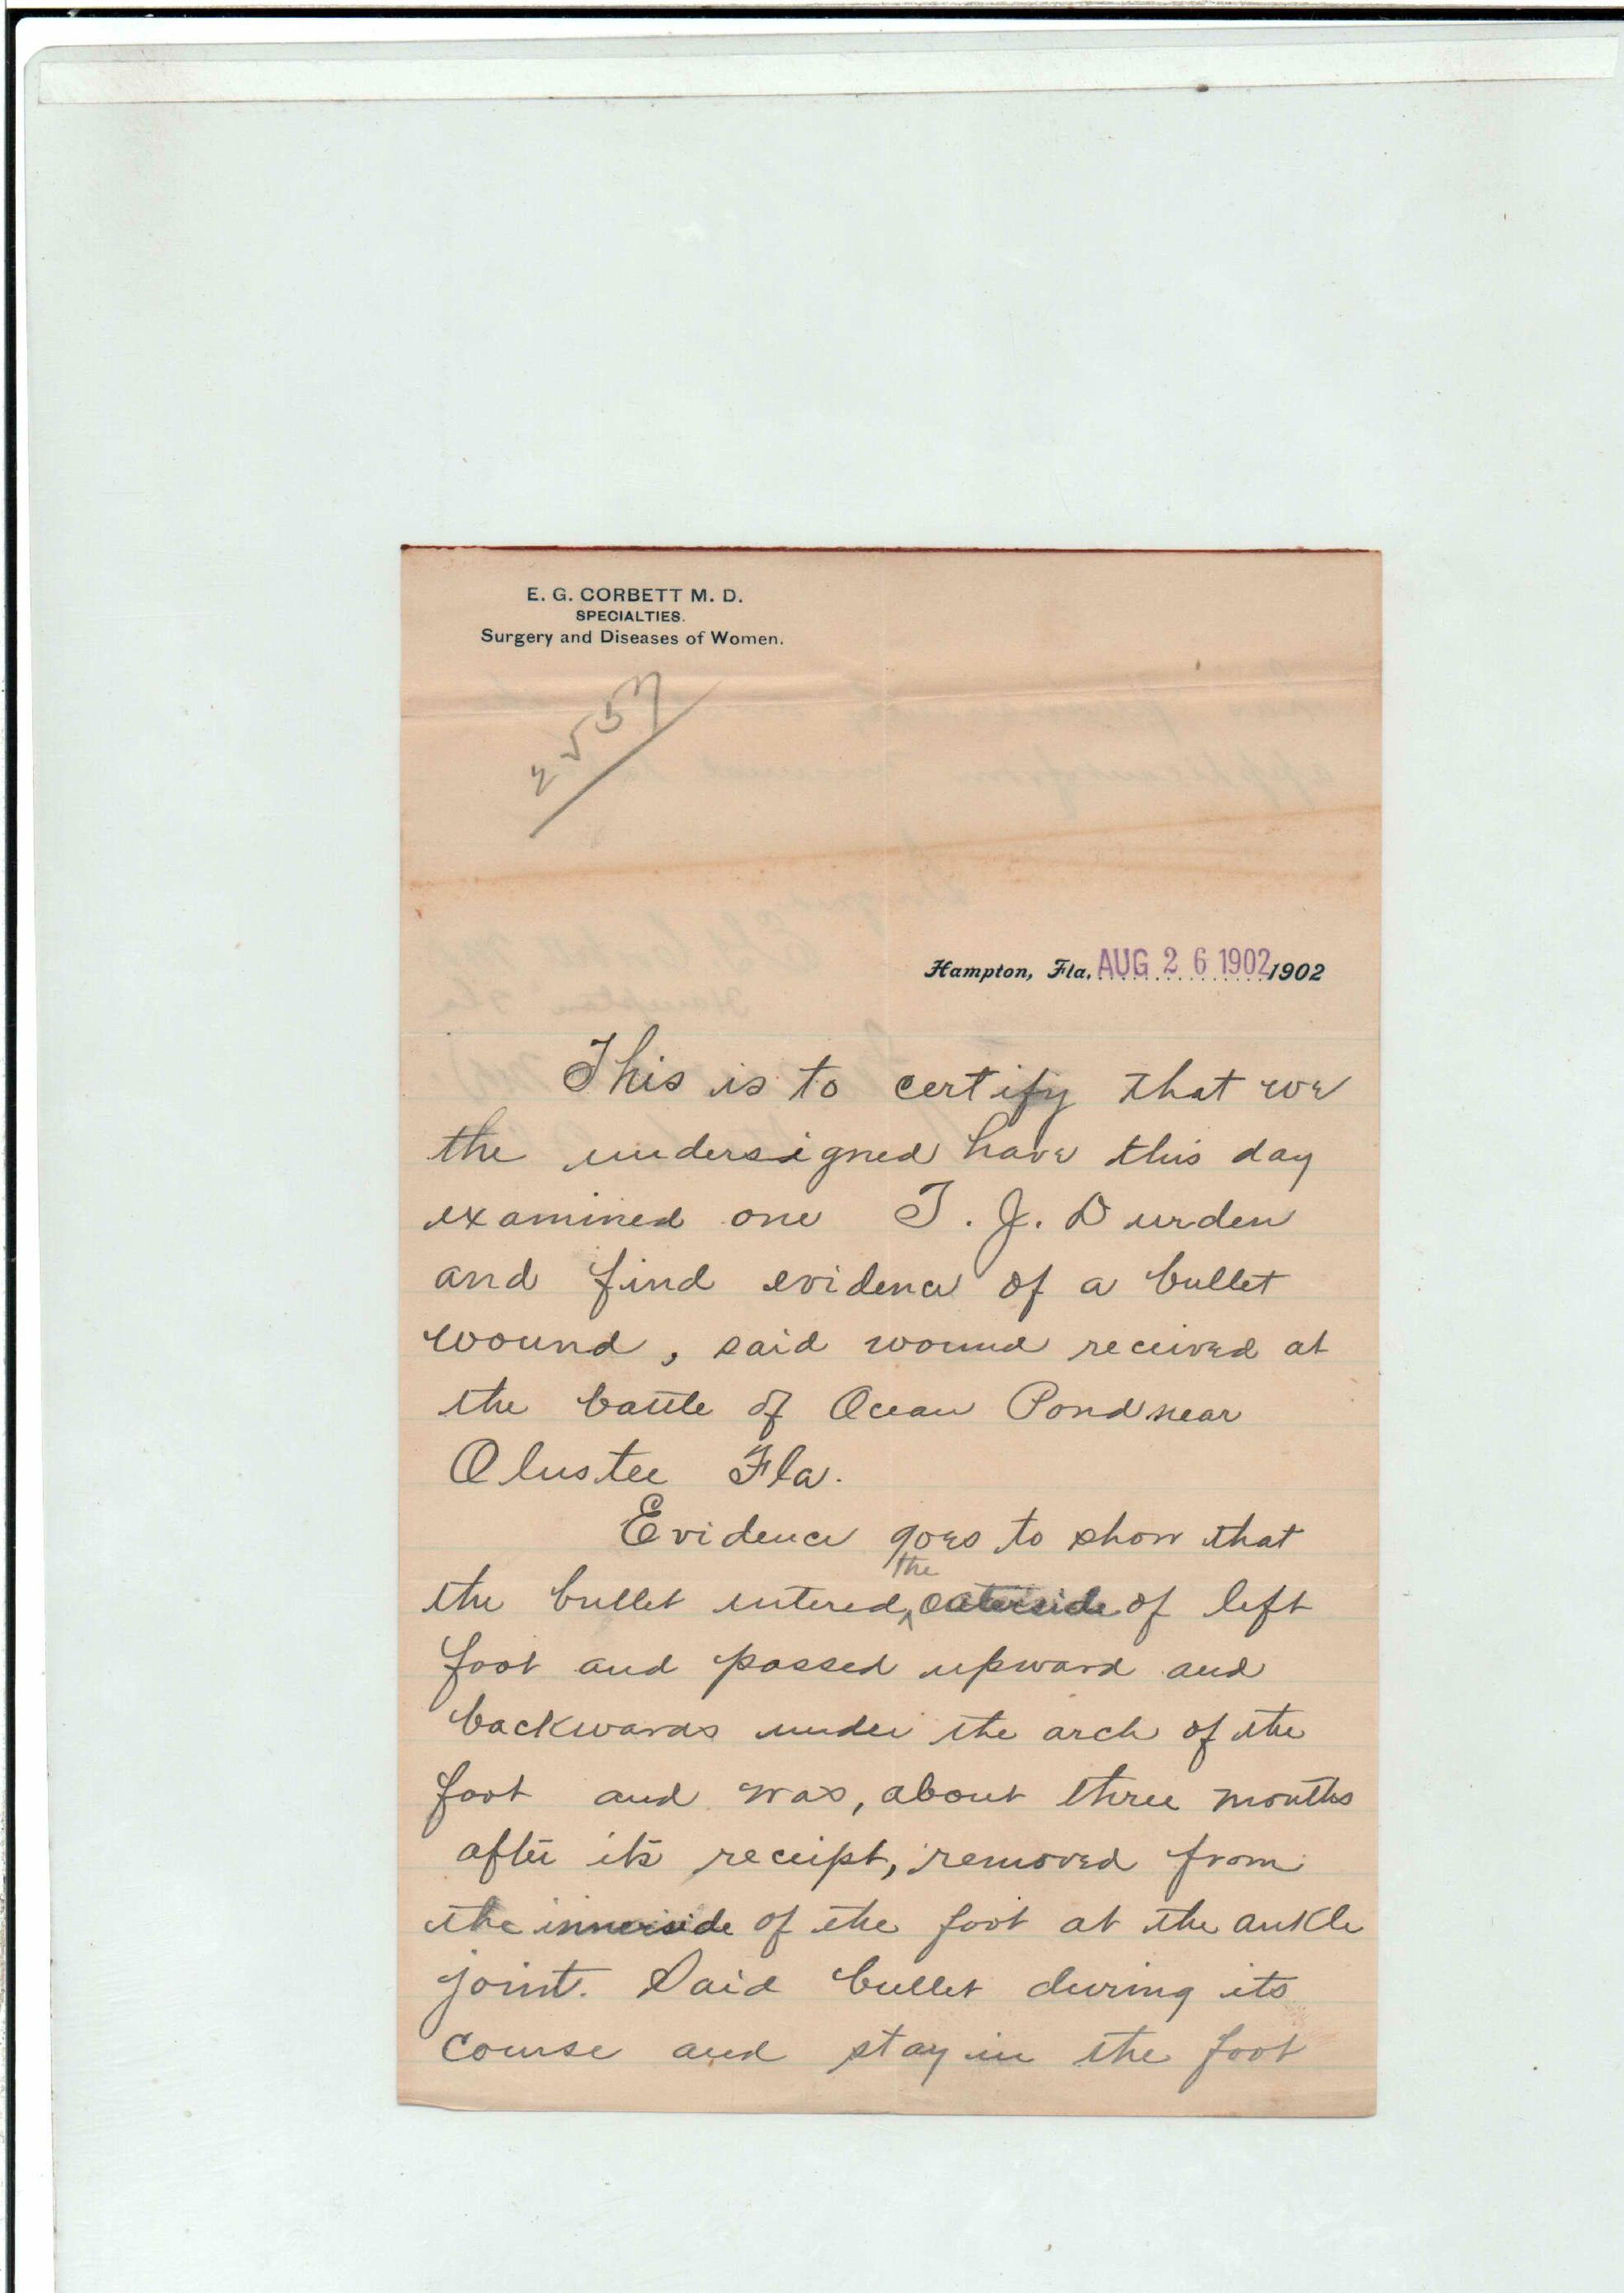 E. G. CORBETT M. D.
SPECIALTIES.
Surgery and Diseases of Women.
Hampton, Fla. AUG 26 1902 1902
This is to certify that we
the undersigned have this day
examined one T. J. Durden
and find evidence of a bullet
wound, said wound received at
the battle of Ocean Pond near
Olustee Fla.
Evidence goes to show that
the bullet intered the outerside of left
foot and passed upward and
backwards under the arch of the
foot and was, about three months
after its receipt, removed from
the innerside of the foot at the ankle
joint. Said bullet during its
course and stay in the foot